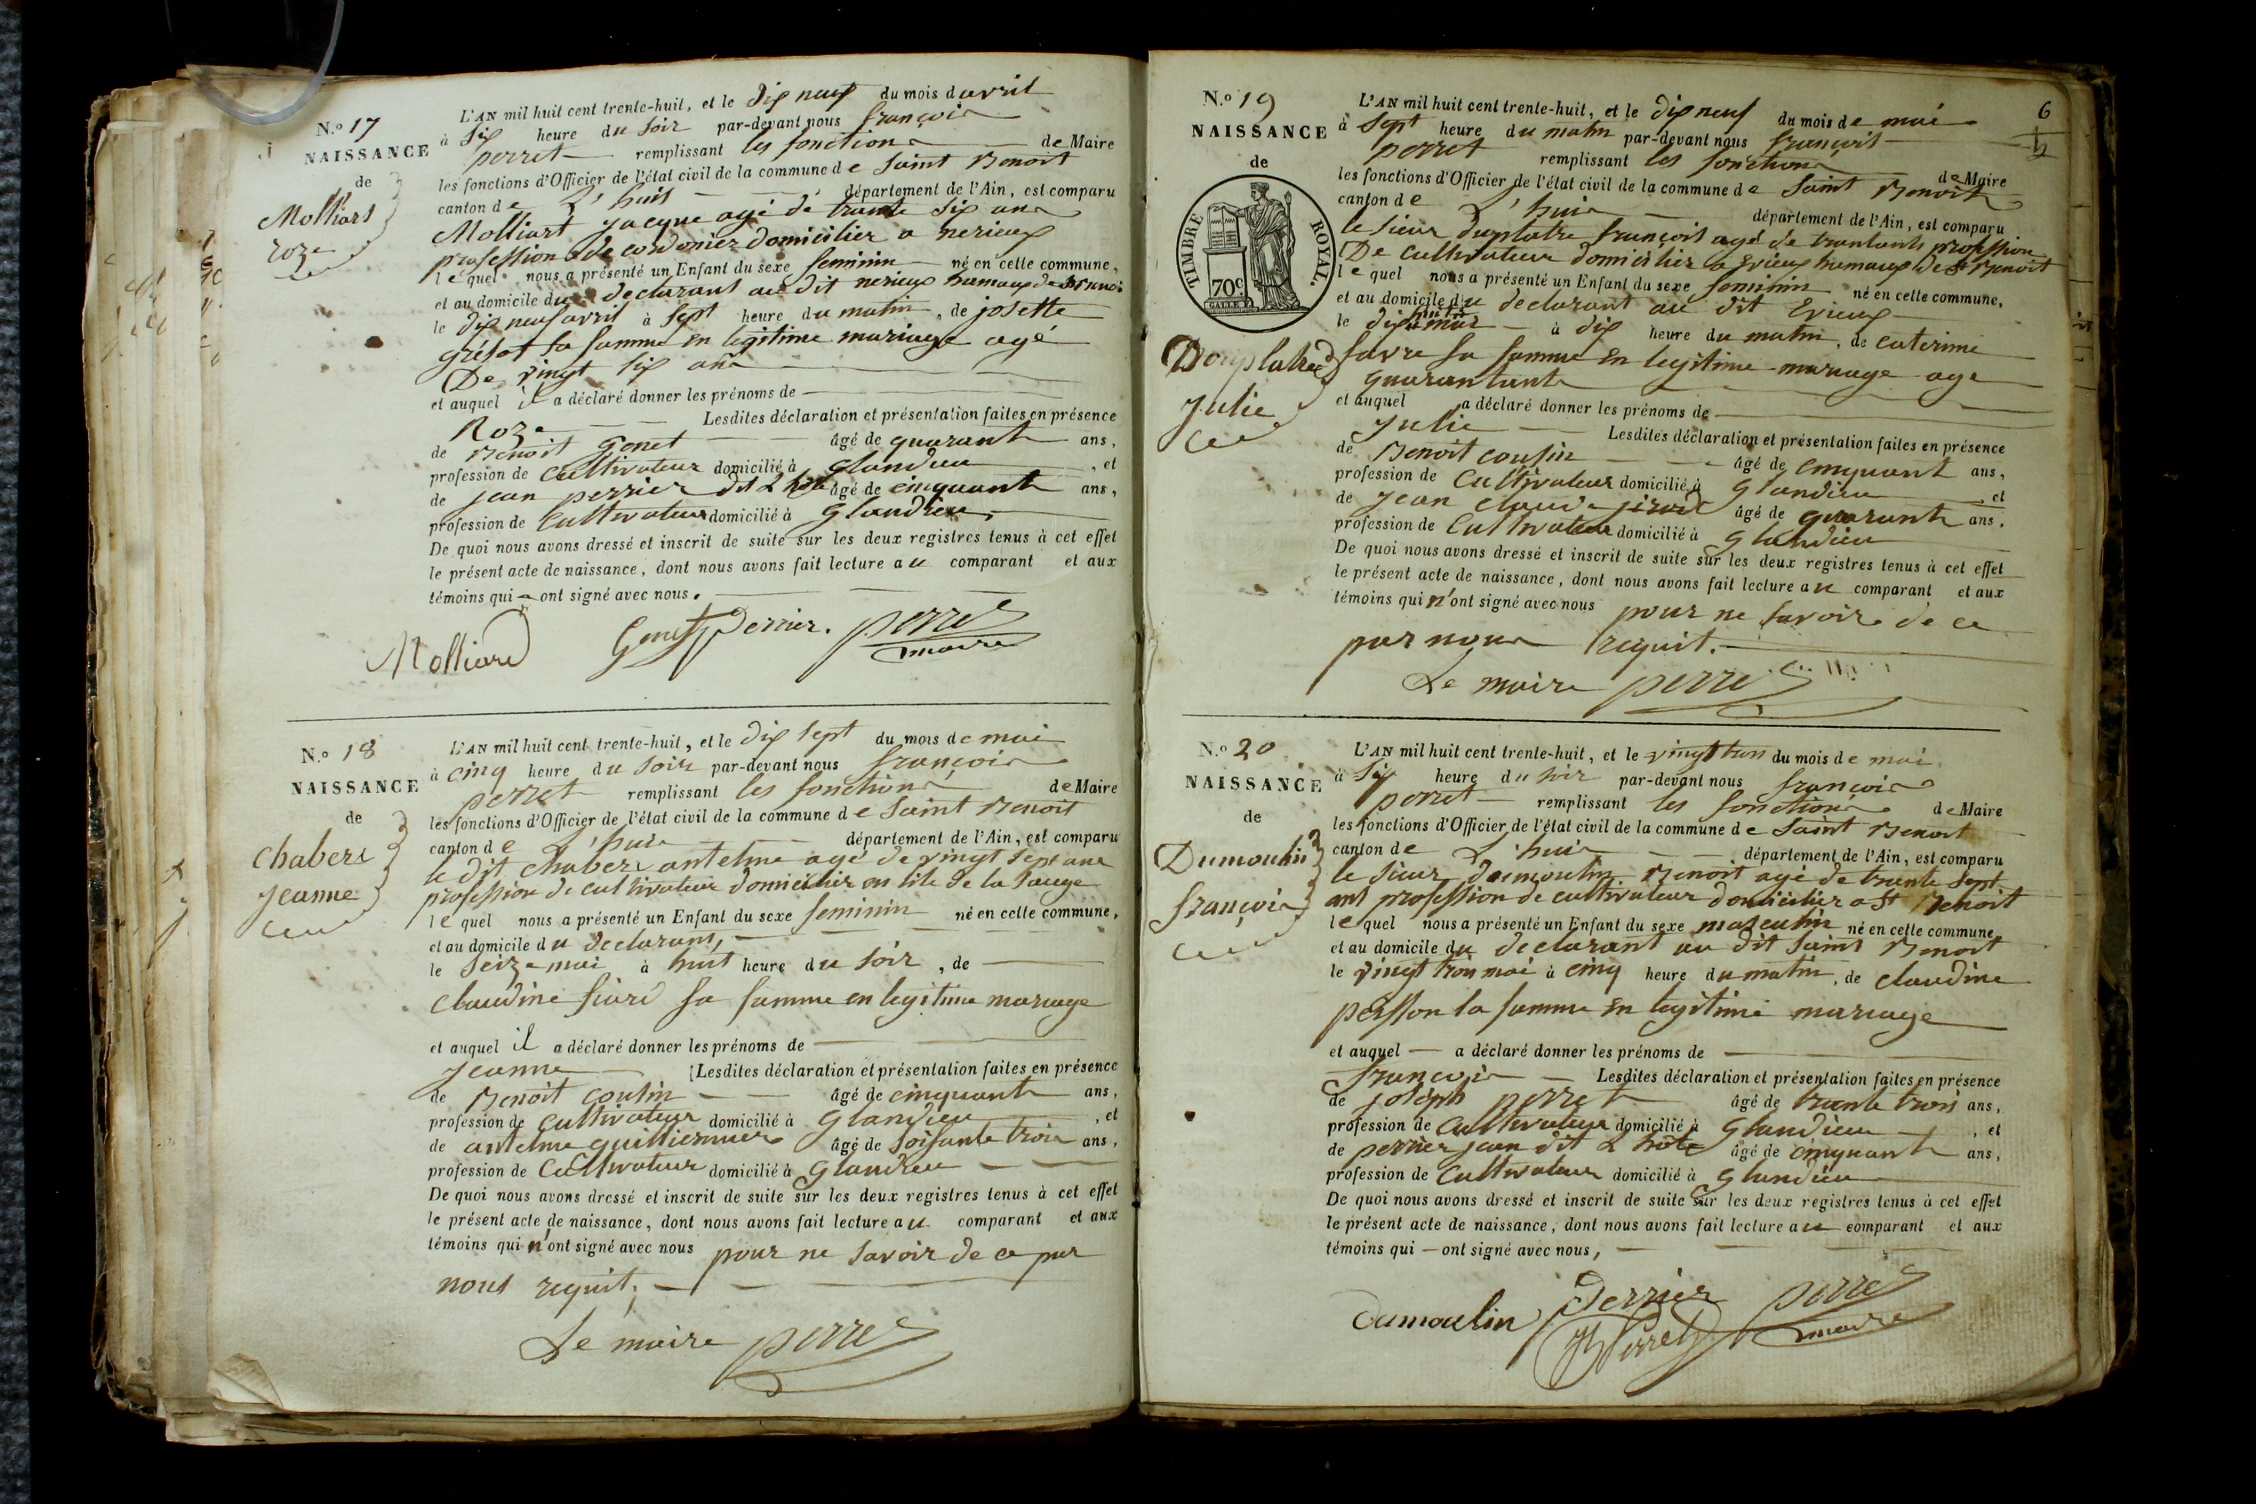 N.o 17
NAISSANCE
de
Molliard
roze
L'AN mil huit cent trente-huit, et le dix neuf du mois d avril
à six heure du soir par-devant nous françois
perret remplissant les fonctions de Maire
les fonctions d'Officier de l'état civil de la commune de saint Benoit
canton de L'huis département de l'Ain, est comparu
Molliart jacque agé de trante six ans
profession de cordonier domicilier a nerieux
lequel nous a présenté un Enfant du sexe feminin né en cette commune,
et au domicile du declarant au dit nerieux hamaux de
le dix neuf avril à sept heure du matin, de josette
sa famme en legitime mariage agé
De vingt six ans
et auquel il a déclaré donner les prénoms de
Roze Lesdites déclaration et présentation faites en présence
de Benoit Genet âgé de quarante ans,
profession de cultivateur domicilié à glandieu, et
de jean perrier dit L'hôte âgé de cinquante ans,
profession de cultivateur domicilié à glandieu,
De quoi nous avons dressé et inscrit de suite sur les deux registres tenus à cet effet
le présent acte de naissance, dont nous avons fait lecture au comparant et aux
témoins qui ont signé avec nous.
Molliard Genet perrier. perret
maire
N.o 18
NAISSANCE
de
Chabert
jeanne
L'AN mil huit cent trente-huit, et le dix sept du mois de mai
à cinq heure du soir par-devant nous françois
perret remplissant les fonctions de Maire
les fonctions d'Officier de l'état civil de la commune de saint Benoit
canton de L'huis département de l'Ain, est comparu
le dit chabert antelme agé de vingt sept ans
profession de cultivateur domicilier en lile de la sauge
lequel nous a présenté un Enfant du sexe feminin né en cette commune,
et au domicile du declarant,
le seize mai à huit heure du soir, de
claudine sa famme en legitime mariage
et auquel il a déclaré donner les prénoms de
jeanne Lesdites déclaration et présentation faites en présence
de Benoit cousin âgé de cinquante ans,
profession de cultivateur domicilié à glandieu, et
de antelme âgé de soisante trois ans,
profession de cultivateur domicilié à glandieu
De quoi nous avons dressé et inscrit de suite sur les deux registres tenus à cet effet
le présent acte de naissance, dont nous avons fait lecture au comparant et aux
témoins qui n'ont signé avec nous pour ne savoir de ce par
nous requit.
Le maire perret
6
N.o 19
NAISSANCE
de
TIMBRE ROYAL.
70c.
Douplatre
julie
L'AN mil huit cent trente-huit, et le dix neuf du mois de mai
à sept heure du matin par-devant nous françois
perret remplissant les fonctions de Maire
les fonctions d'Officier de l'état civil de la commune de saint Benoit
canton de L'huis département de l'Ain, est comparu
le sieur duplatre françois agé de profession
De cultivateur domicilier a Evieux hamaux de St Benoit
lequel nous a présenté un Enfant du sexe feminin né en cette commune,
et au domicile du declarant au dit Evieux
le dix à dix heure du matin, de caterine
favre sa famme en legitime mariage age
quarantante
et auquel a déclaré donner les prénoms de
julie Lesdites déclaration et présentation faites en présence
de Benoit cousin âgé de cinquante ans,
profession de cultivateur domicilié à glandieu et
de jean claude âgé de quarante ans,
profession de cultivateur domicilié à glandieu
De quoi nous avons dressé et inscrit de suite sur les deux registres tenus à cet effet
le présent acte de naissance, dont nous avons fait lecture au comparant et aux
témoins qui n'ont signé avec nous pour ne savoir de ce
par nous requit.
Le maire perret
N.o 20
NAISSANCE
de
Dumoulin
françois
L'AN mil huit cent trente-huit, et le vingt trois du mois de mai
à six heure du soir par-devant nous françois
perret remplissant les fonctions de Maire
les fonctions d'Officier de l'état civil de la commune de saint Benoit
canton de L'huis département de l'Ain, est comparu
le sieur dumoulin Benoit agé de trante sept
ans profession de cultivateur domicilier a St Benoit
lequel nous a présenté un Enfant du sexe masculin né en cette commune,
et au domicile du declarant au dit saint Benoit
le vingt trois mai à cinq heure du matin, de claudine
persson sa famme en legitime mariage
et auquel a déclaré donner les prénoms de
françois Lesdites déclaration et présentation faites en présence
de joseph perret âgé de trante trois ans,
profession de cultivateur domicilié à glandieu, et
de perrier jean dit L'hôte âgé de cinquante ans,
profession de cultivateur domicilié à glandieu
De quoi nous avons dressé et inscrit de suite sur les deux registres tenus à cet effet
le présent acte de naissance, dont nous avons fait lecture au comparant et aux
témoins qui ont signé avec nous,
Dumoulin perrier perret
Jh Perret maire